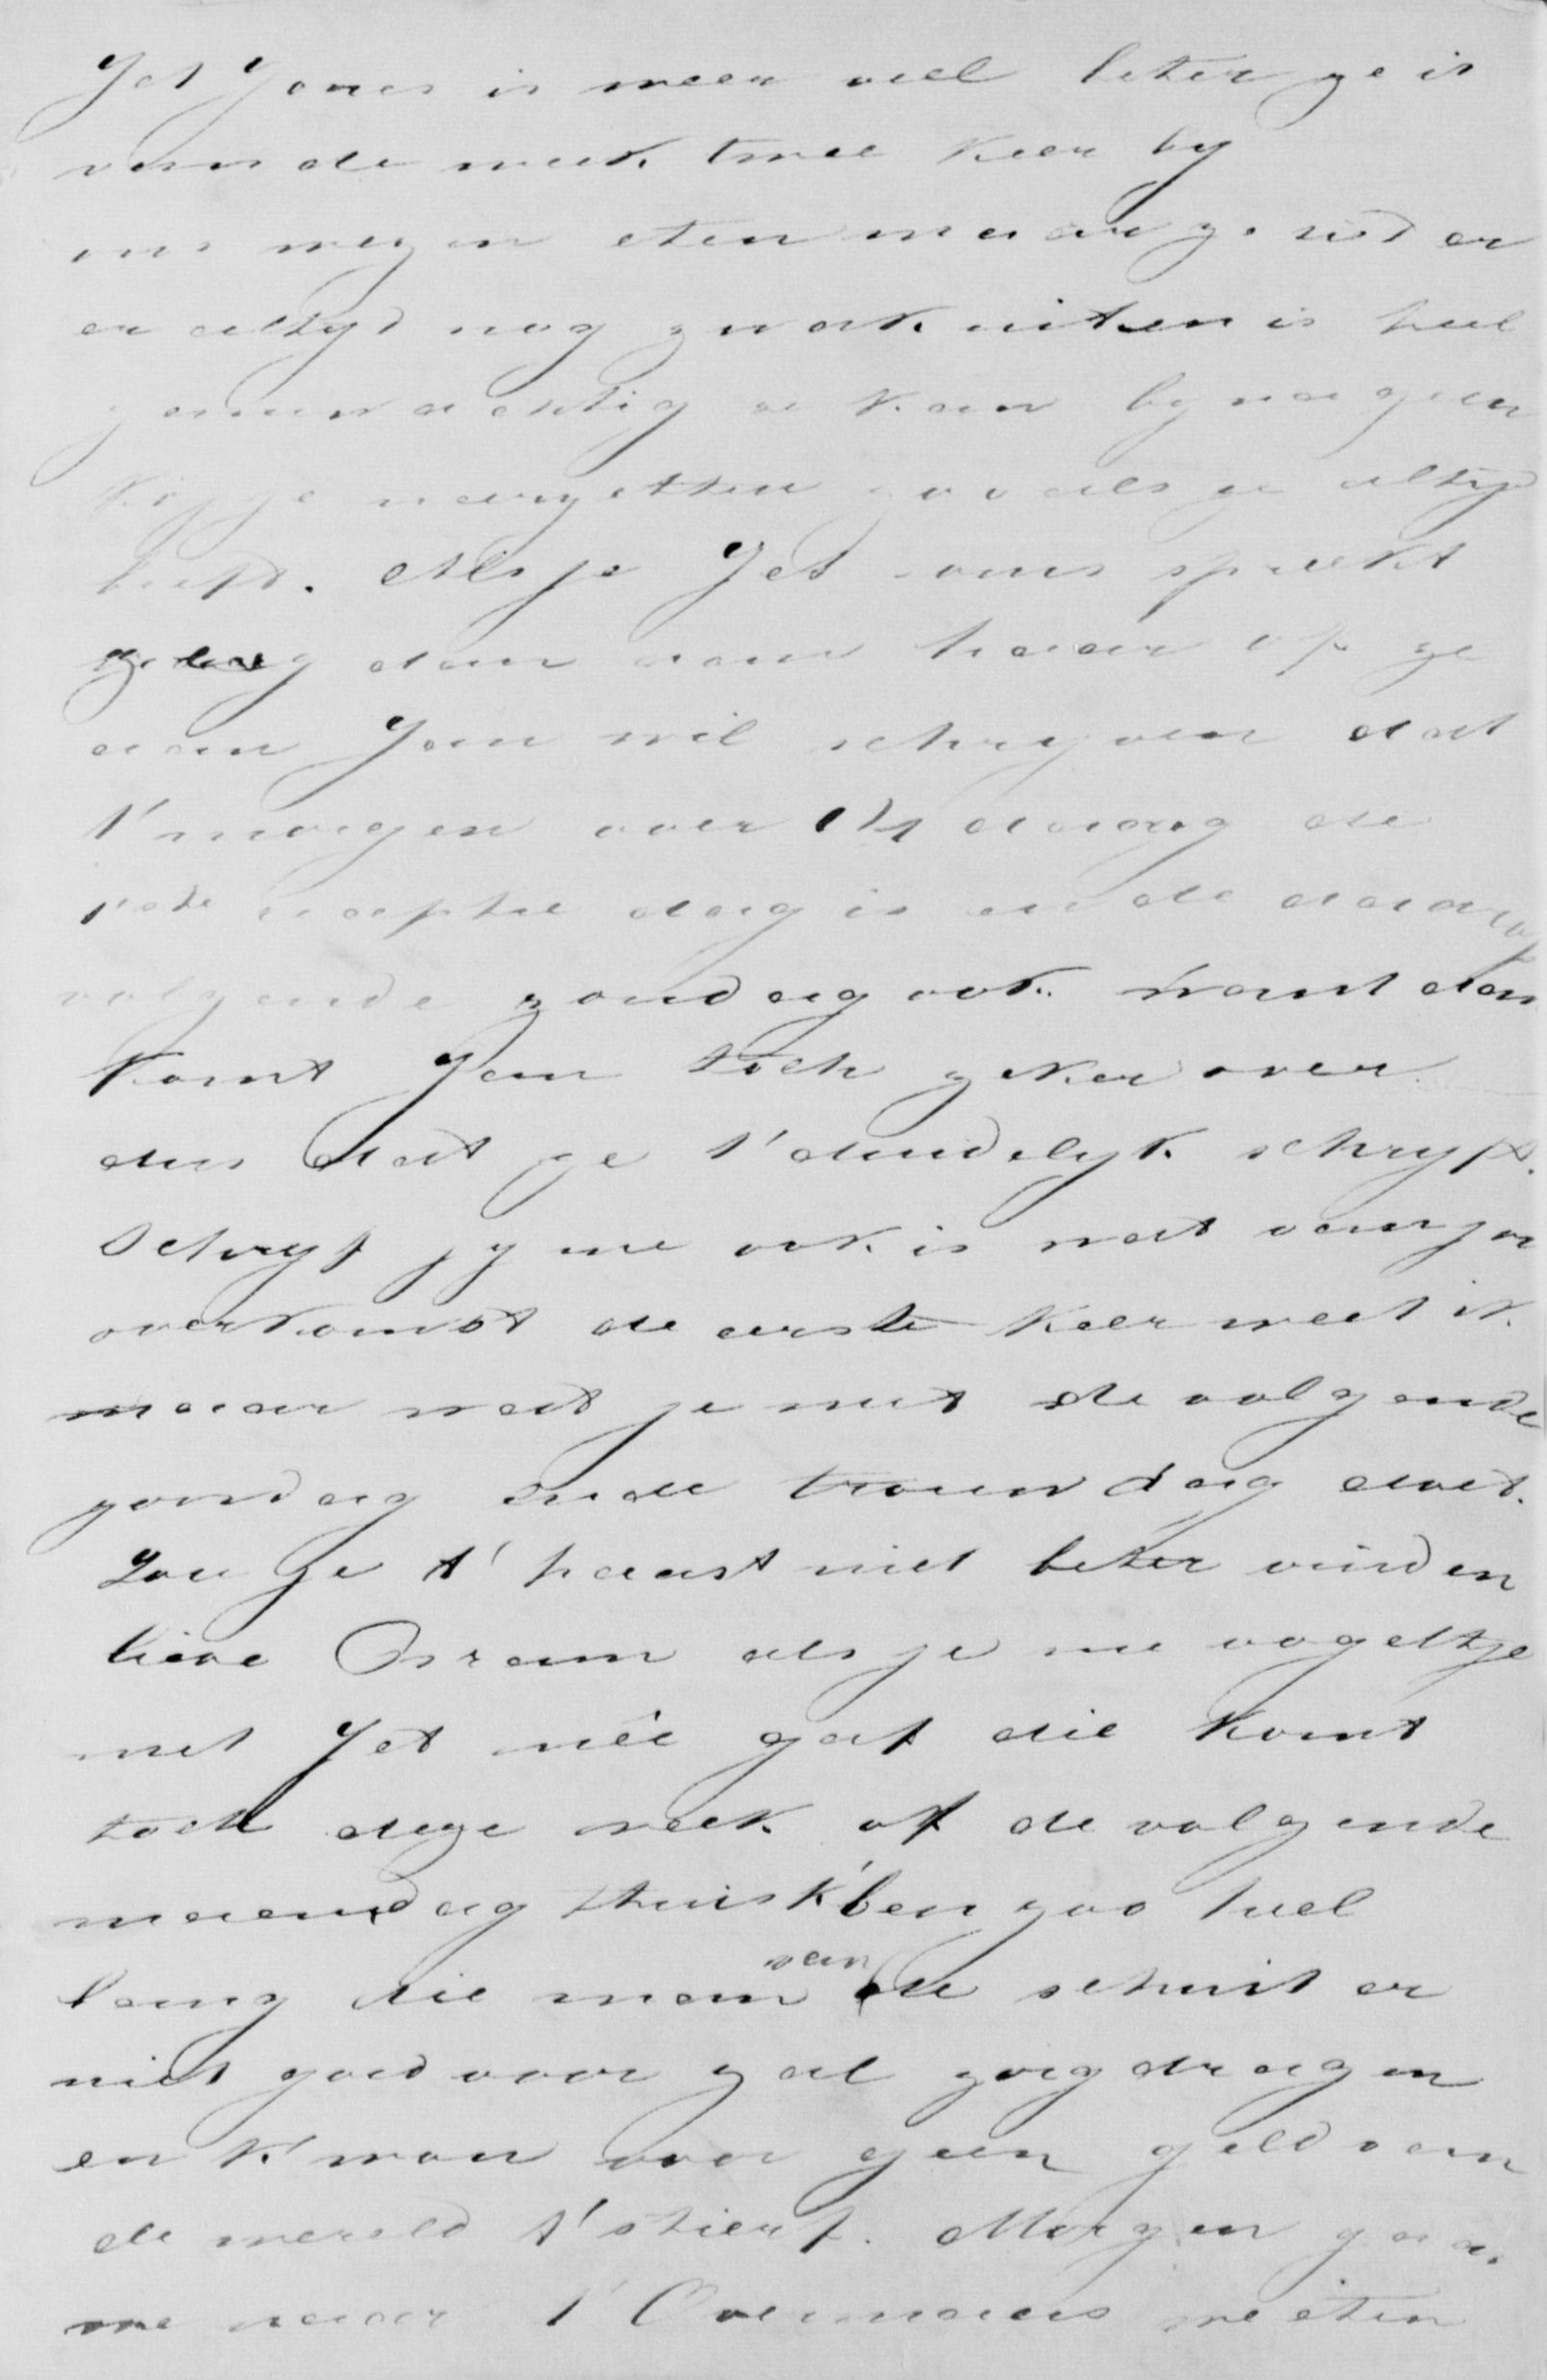 Jet Jones is weer veel beter ze is
van de week twee keer by
ons wezen eten maar ze ziet er
er altyd nog zwak uit en is heel
zenuwachtig ze kan byna geen
kopje vasthouden zooals ze altyd
heeft. Als je Jet soms spreekt
zeg dan aan haar of ze
aan Jan wil schryven dat
t'morgen over 14 daag de
1ste receptie dag is en de daarop
volgende zondag ook want dan
komt Jan toch zeker over
dus dat ze t'duidelyk schryft.
Schryf jy me ook is wat van je
overkomst de eerste keer weet ik
maar wat je met de volgende
zondag en de trouwdag doet.
Zou je t' haast niet beter vinden
lieve Bram als je me vogeltje
met Jet mêe gaf die komt
toch deze week of de volgende
maandag thuis k'ben zoo heel
bang die man van de schuit er
niet goed voor zal zorg dragen
en k'wou voor geen geld van
de wereld t'stierf. Morgen gaan
we naar t' Overmaas we eten